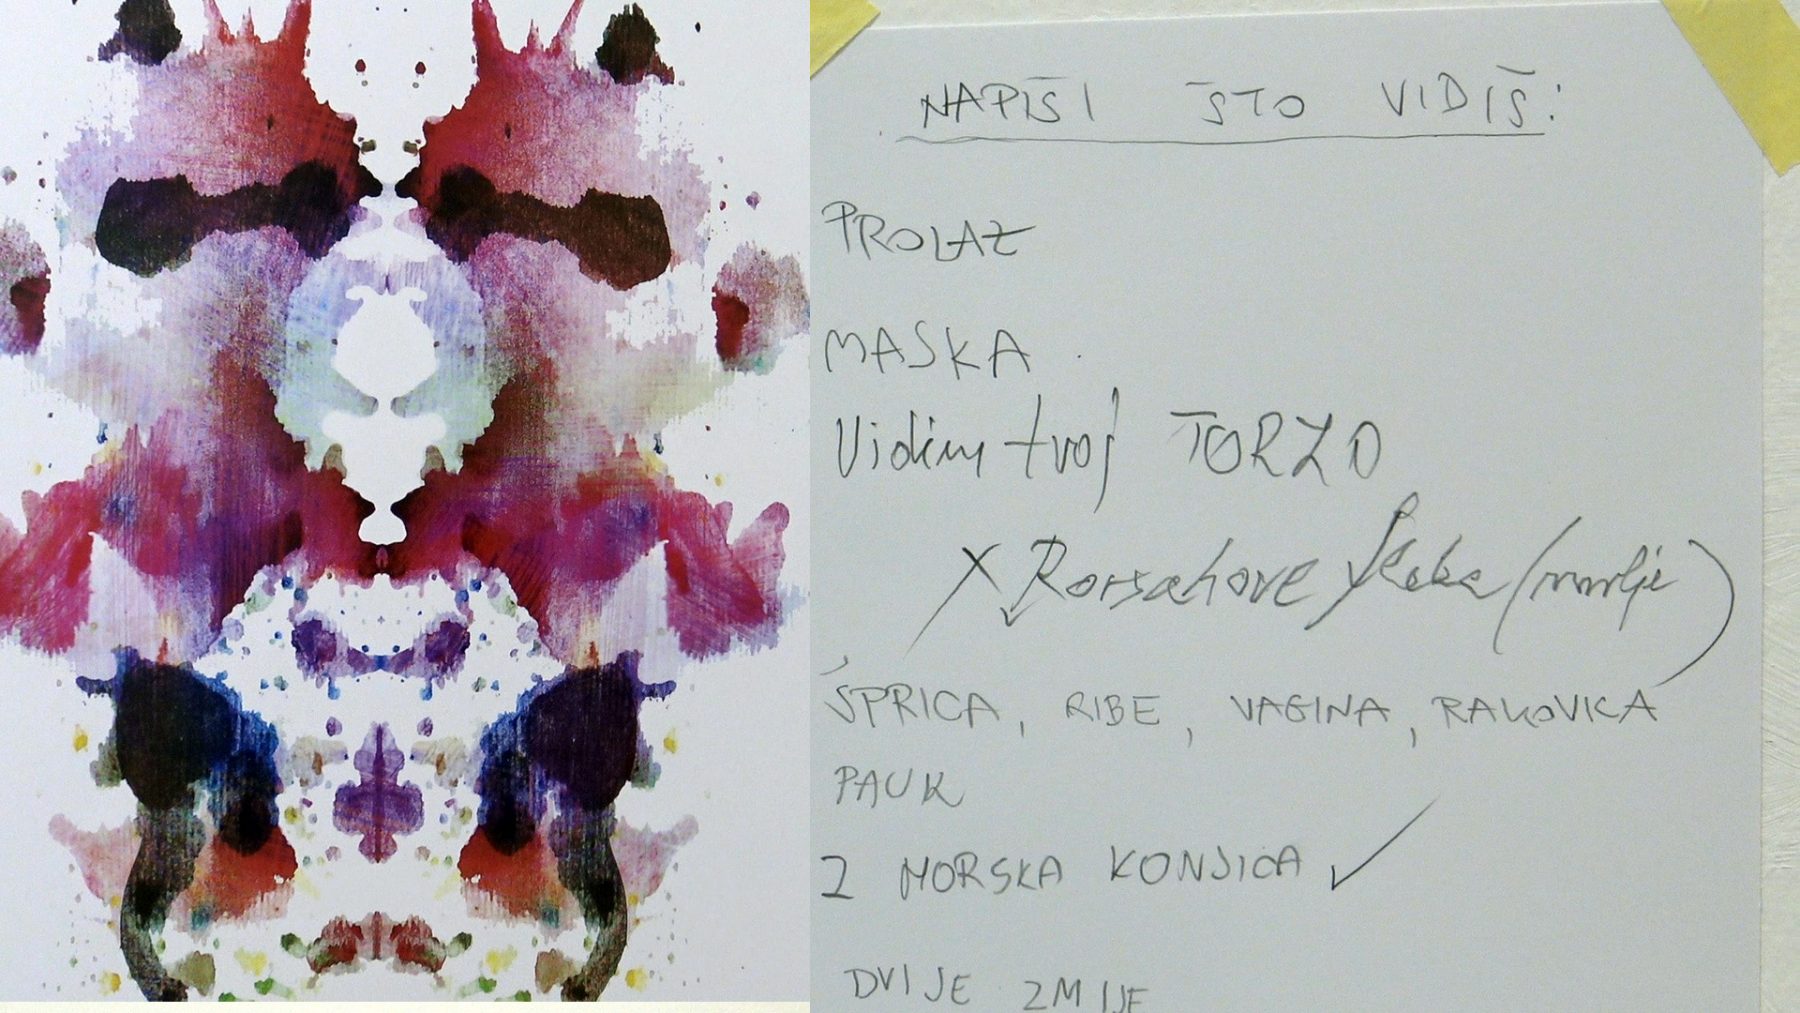 NAPIŠI ŠTO VIDIŠ:
PROLAZ
MASKA
Vidim tvoj TORZO
X Rorsahove (mrlje)
ŠPRICA, RIBE, VAGINA, RAKOVICA
PAUK
2 MORSKA KONJICA ✓
DVIJE ZMIJE